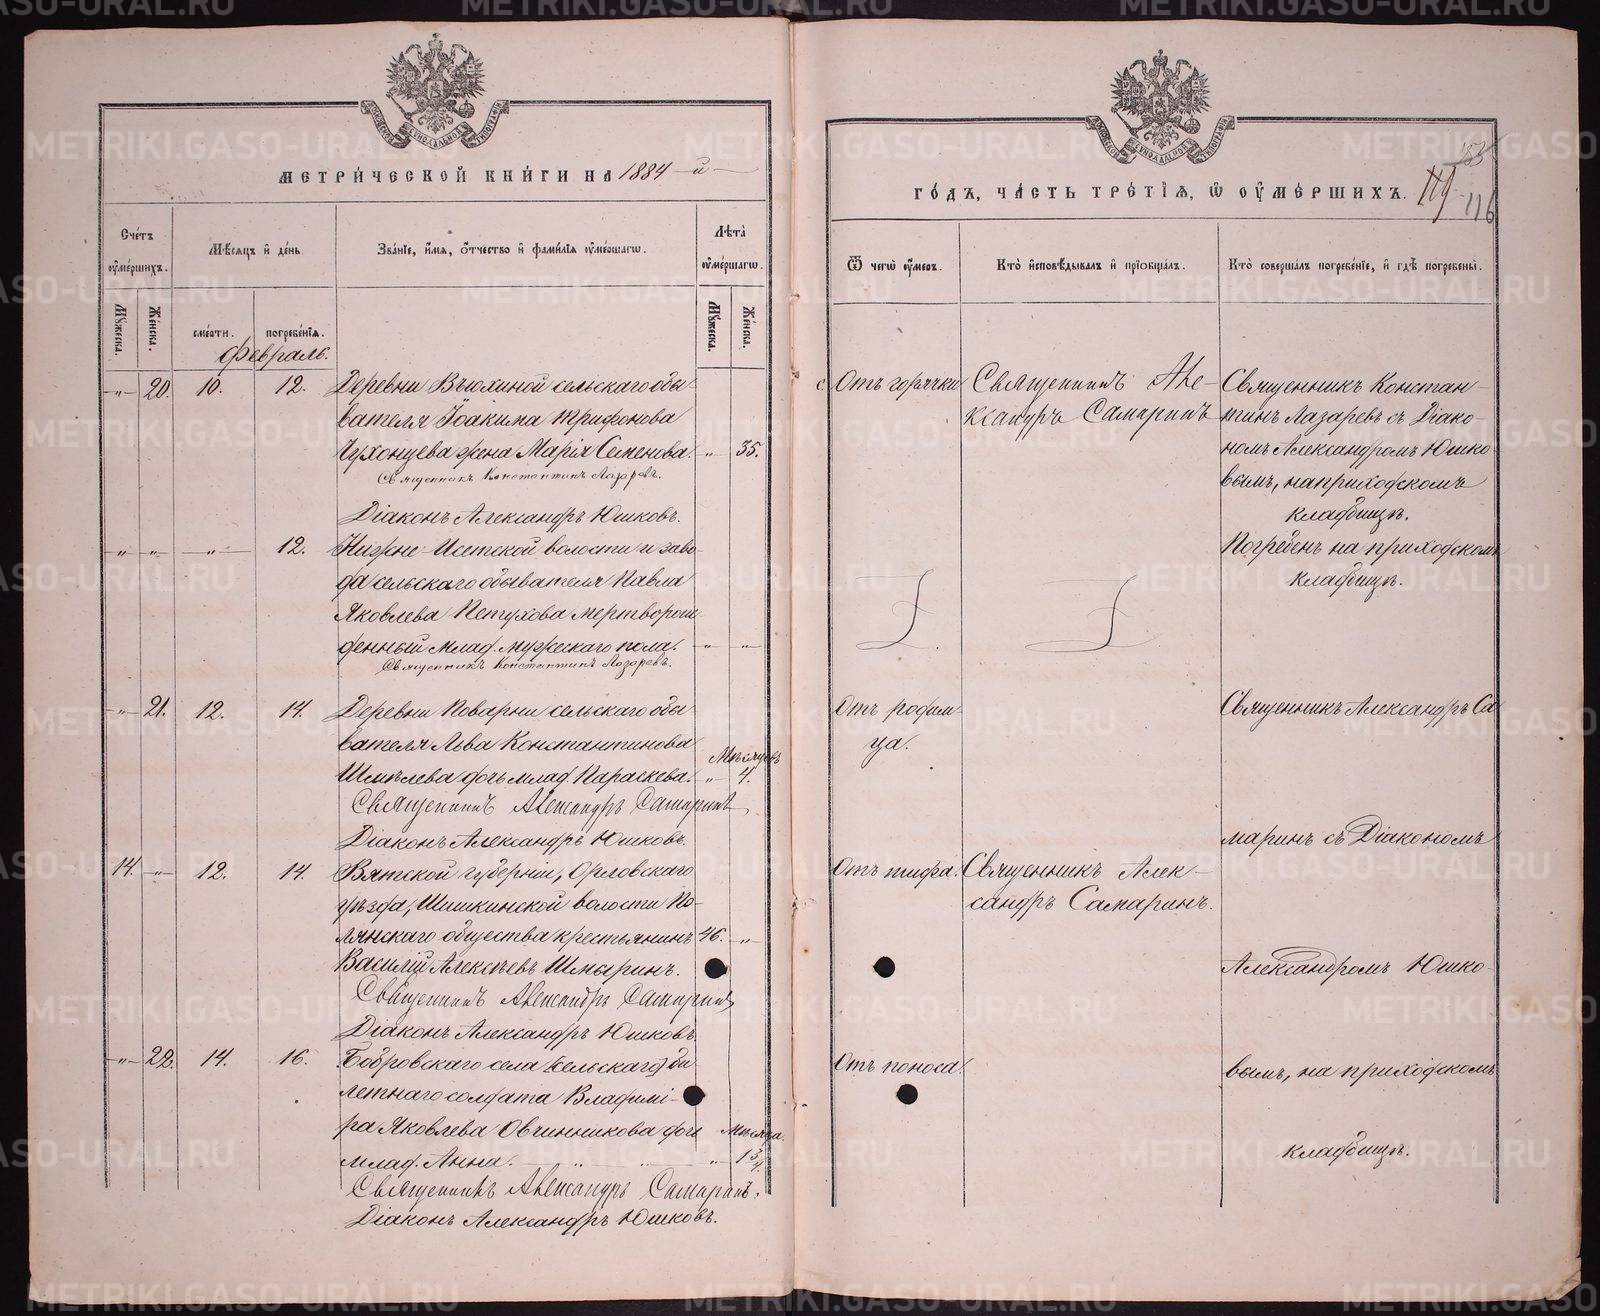 МЕТРИ́ЧЕСКОЙ КНИ́ГИ НА 1884-й
Сче́тъ ѹ҆ме́ршихъ.
Мѣ́сяцъ и҆ де́нь.
Зва́нїе, и҆́мя, ѻ҆́тчество и҆ фами́лїя ѹ҆ме́ршагѡ.
Лѣ́та ѹ҆ме́ршагѡ.
Мꙋ́жеска.
Же́нска.
сме́рти.
погребе́нїя.
Мꙋ́жеска.
Же́нска.
Февраль.
-„- 20. 10. 12. Деревни Вьюхиной сельскаго обы-
вателя Іоакима Трифонова
Чухонцева жена Марія Семенова. -„- 35.
Священникъ Константинъ Лазаревъ.
Діаконъ Александръ Юшковъ.
-„- -„- -„- 12. Нижне-Исетской волости и заво-
да сельскаго обывателя Павла
Яковлева Петухова мертворож-
денный млад. мужескаго пола. -„- -„-
Священникъ Константинъ Лазаревъ.
-„- 21. 12. 14. Деревни Поварни сельскаго обы-
вателя Льва Константинова
Мѣсяцевъ
Шмелева дочь млад. Параскева. „ 4.
Священникъ Александръ Самаринъ
Діаконъ Александръ Юшковъ.
14. -„- 12. 14. Вятской губерніи, Орловскаго
уѣзда, Шишкинской волости По-
лянскаго общества крестьянинъ 46. -„-
Василій Алексѣевъ Шмыринъ.
Священникъ Александръ Самаринъ
Діаконъ Александръ Юшковъ.
-„- 22. 14. 16. Бобровскаго села (сельскаго) би-
летнаго солдата Владимі-
ра Яковлева Овчинникова дочь Мѣсяца.
млад. Анна. „ „ „ 1 3/4.
Священникъ Александръ Самаринъ.
Діаконъ Александръ Юшковъ.
ГО́ДЪ, ЧА́СТЬ ТРЕ́ТЇЯ, Ѡ҆ ѸМЕ́РШИХЪ.
153
116
Ѿ чегѡ̀ ѹ҆́меръ.
Кто̀ и҆сповѣ́дывалъ и҆ прїѻбща́лъ.
Кто̀ соверша́лъ погребе́нїе, и҆ гдѣ̀ погребены̀.
Отъ горячки Священникъ Але- Священникъ Констан-
ксандръ Самаринъ тинъ Лазаревъ съ Діако-
номъ Александромъ Юшко-
вымъ, на приходскомъ
кладбищѣ.
Погребенъ на приходскомъ
кладбищѣ.
Отъ родим- Священникъ Александръ Са
ца.
маринъ съ Діакономъ
Отъ тифа. Священникъ Алек-
сандръ Самаринъ.
Александромъ Юшко-
Отъ поноса. вымъ, на приходскомъ
кладбищѣ.
METRIKI.GASO-URAL.RU